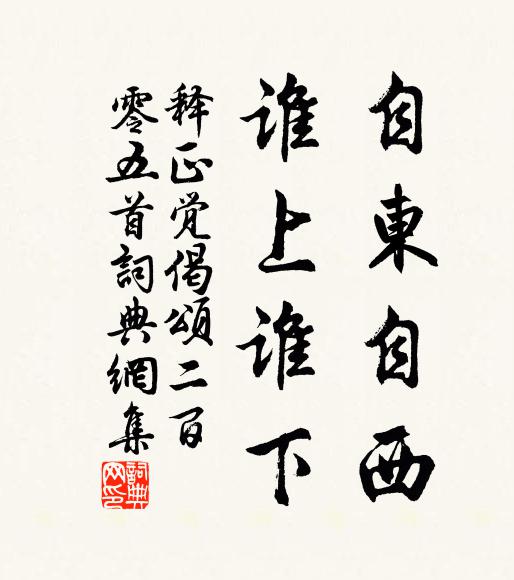 自東自西
誰上誰下
释正觉偈頌二百
零五首詞典網集
詞典网印